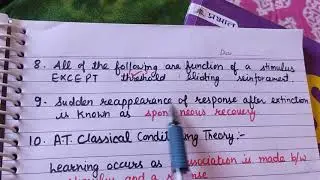 8. All of the following are function of a stimulus
EXCEPT threshold sliding reinforcement
9. Sudden reappearance of response after extinction
is known as spontaneous recovery
10. A.T. Classical Conditioning Theory:-
Learning occurs as association is made b/w
stimulus and a response